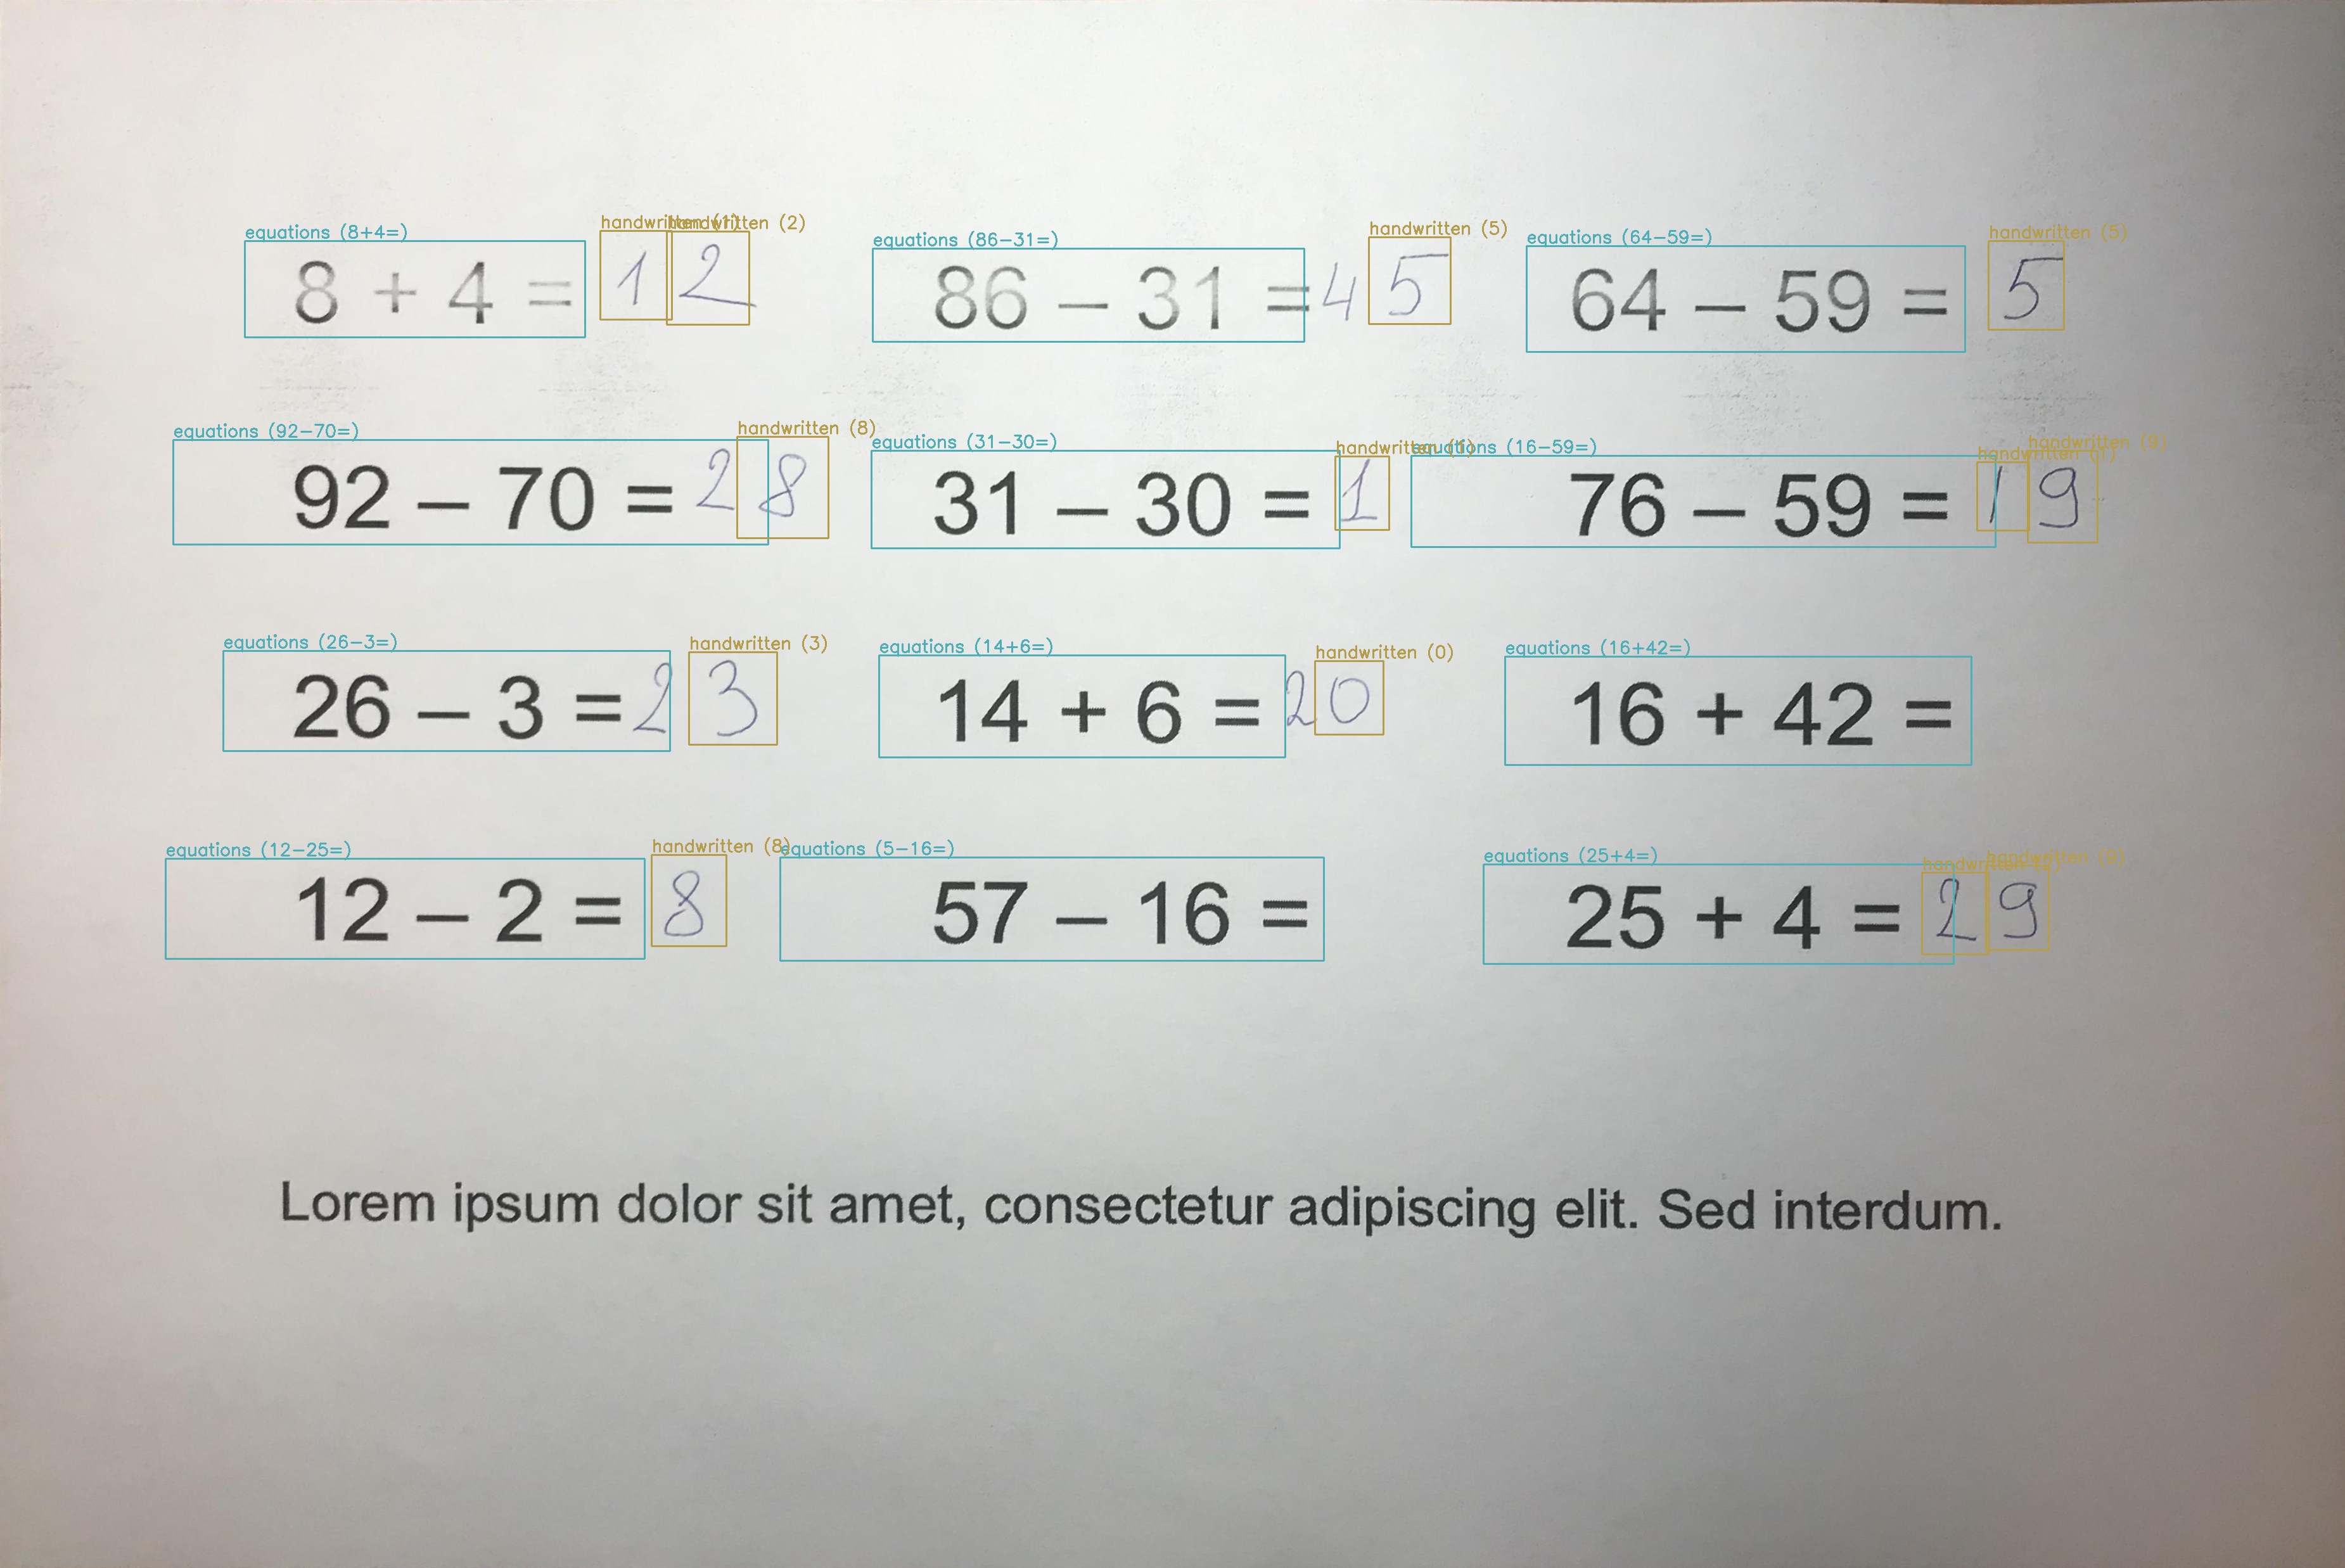 equations (8+4=) handwritten (1) handwritten (2) equations (86-31=) handwritten (5) equations (64-59=) handwritten (5)
8 + 4 = 12 86 – 31 = 45 64 – 59 = 5
equations (92-70=) handwritten (8) equations (31-30=) handwritten (1) equations (16-59=) handwritten (1) handwritten (9)
92 – 70 = 28 31 – 30 = 1 76 – 59 = 19
equations (26-3=) handwritten (3) equations (14+6=) handwritten (0) equations (16+42=)
26 – 3 = 23 14 + 6 = 20 16 + 42 =
equations (12-25=) handwritten (8) equations (5-16=) equations (25+4=) handwritten handwritten (9)
12 – 2 = 8 57 – 16 = 25 + 4 = 29
Lorem ipsum dolor sit amet, consectetur adipiscing elit. Sed interdum.